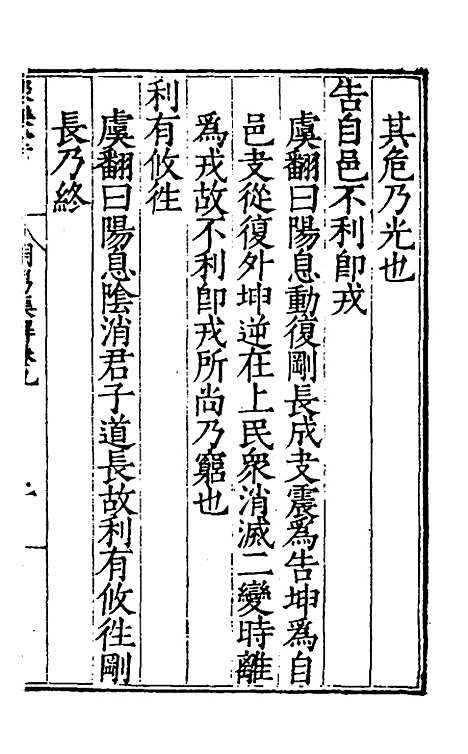 其危乃光也
告自邑不利卽戎
虞翻曰陽息動復剛長成夬震爲告坤爲自
邑夬從復升坤逆在上民衆消滅二變時離
爲戎故不利卽戎所尚乃窮也
利有攸徃
虞翻曰陽息陰消君子道長故利有攸徃剛
長乃終